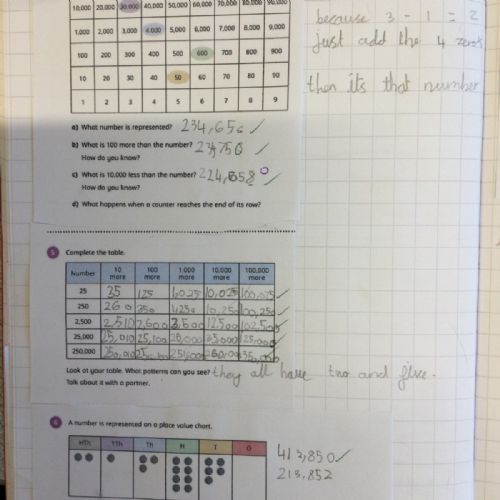 10,000 20,000 30,000 40,000 50,000 60,000 70,000 80,000 90,000
1,000 2,000 3,000 4,000 5,000 6,000 7,000 8,000 9,000
100 200 300 400 500 600 700 800 900
10 20 30 40 50 60 70 80 90
1 2 3 4 5 6 7 8 9
because 3 - 1 = 2
just add the 4 zeros
then its that number
a) What number is represented? 234,650 ✓
b) What is 100 more than the number? 234,750 ✓
How do you know?
c) What is 10,000 less than the number? 224,658 ✓
How do you know?
d) What happens when a counter reaches the end of its row?
5 Complete the table.
Number 10 more 100 more 1,000 more 10,000 more 100,000 more
25 35 125 1025 10,025 100,025 ✓
250 260 350 1,250 10,250 100,250 ✓
2,500 2,510 2,600 3,500 12,500 102,500 ✓
25,000 25,010 25,100 26,000 35,000 125,000 ✓
250,000 250,010 250,100 251,000 260,000 350,000 ✓
Look at your table. What patterns can you see? they all have two and five.
Talk about it with a partner.
6 A number is represented on a place value chart.
HTh TTh Th H T O
413,850 ✓
213,852